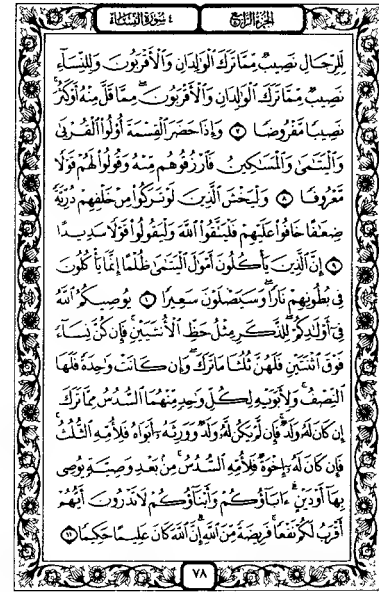 الجزء الرابع ٤ سورة النساء
لِّلرِّجَالِ نَصِيبٌ مِّمَّا تَرَكَ الْوَالِدَانِ وَالْأَقْرَبُونَ وَلِلنِّسَاءِ
نَصِيبٌ مِّمَّا تَرَكَ الْوَالِدَانِ وَالْأَقْرَبُونَ مِمَّا قَلَّ مِنْهُ أَوْ كَثُرَ
نَصِيبًا مَّفْرُوضًا ٧ وَإِذَا حَضَرَ الْقِسْمَةَ أُولُوا الْقُرْبَى
وَالْيَتَامَى وَالْمَسَاكِينُ فَارْزُقُوهُم مِّنْهُ وَقُولُوا لَهُمْ قَوْلًا
مَّعْرُوفًا ٨ وَلْيَخْشَ الَّذِينَ لَوْ تَرَكُوا مِنْ خَلْفِهِمْ ذُرِّيَّةً
ضِعَافًا خَافُوا عَلَيْهِمْ فَلْيَتَّقُوا اللَّهَ وَلْيَقُولُوا قَوْلًا سَدِيدًا
٩ إِنَّ الَّذِينَ يَأْكُلُونَ أَمْوَالَ الْيَتَامَى ظُلْمًا إِنَّمَا يَأْكُلُونَ
فِي بُطُونِهِمْ نَارًا وَسَيَصْلَوْنَ سَعِيرًا ١٠ يُوصِيكُمُ اللَّهُ
فِي أَوْلَادِكُمْ لِلذَّكَرِ مِثْلُ حَظِّ الْأُنثَيَيْنِ فَإِن كُنَّ نِسَاءً
فَوْقَ اثْنَتَيْنِ فَلَهُنَّ ثُلُثَا مَا تَرَكَ وَإِن كَانَتْ وَاحِدَةً فَلَهَا
النِّصْفُ وَلِأَبَوَيْهِ لِكُلِّ وَاحِدٍ مِّنْهُمَا السُّدُسُ مِمَّا تَرَكَ
إِن كَانَ لَهُ وَلَدٌ فَإِن لَّمْ يَكُن لَّهُ وَلَدٌ وَوَرِثَهُ أَبَوَاهُ فَلِأُمِّهِ الثُّلُثُ
فَإِن كَانَ لَهُ إِخْوَةٌ فَلِأُمِّهِ السُّدُسُ مِن بَعْدِ وَصِيَّةٍ يُوصِي
بِهَا أَوْ دَيْنٍ آبَاؤُكُمْ وَأَبْنَاؤُكُمْ لَا تَدْرُونَ أَيُّهُمْ
أَقْرَبُ لَكُمْ نَفْعًا فَرِيضَةً مِّنَ اللَّهِ إِنَّ اللَّهَ كَانَ عَلِيمًا حَكِيمًا ١١
٧٨